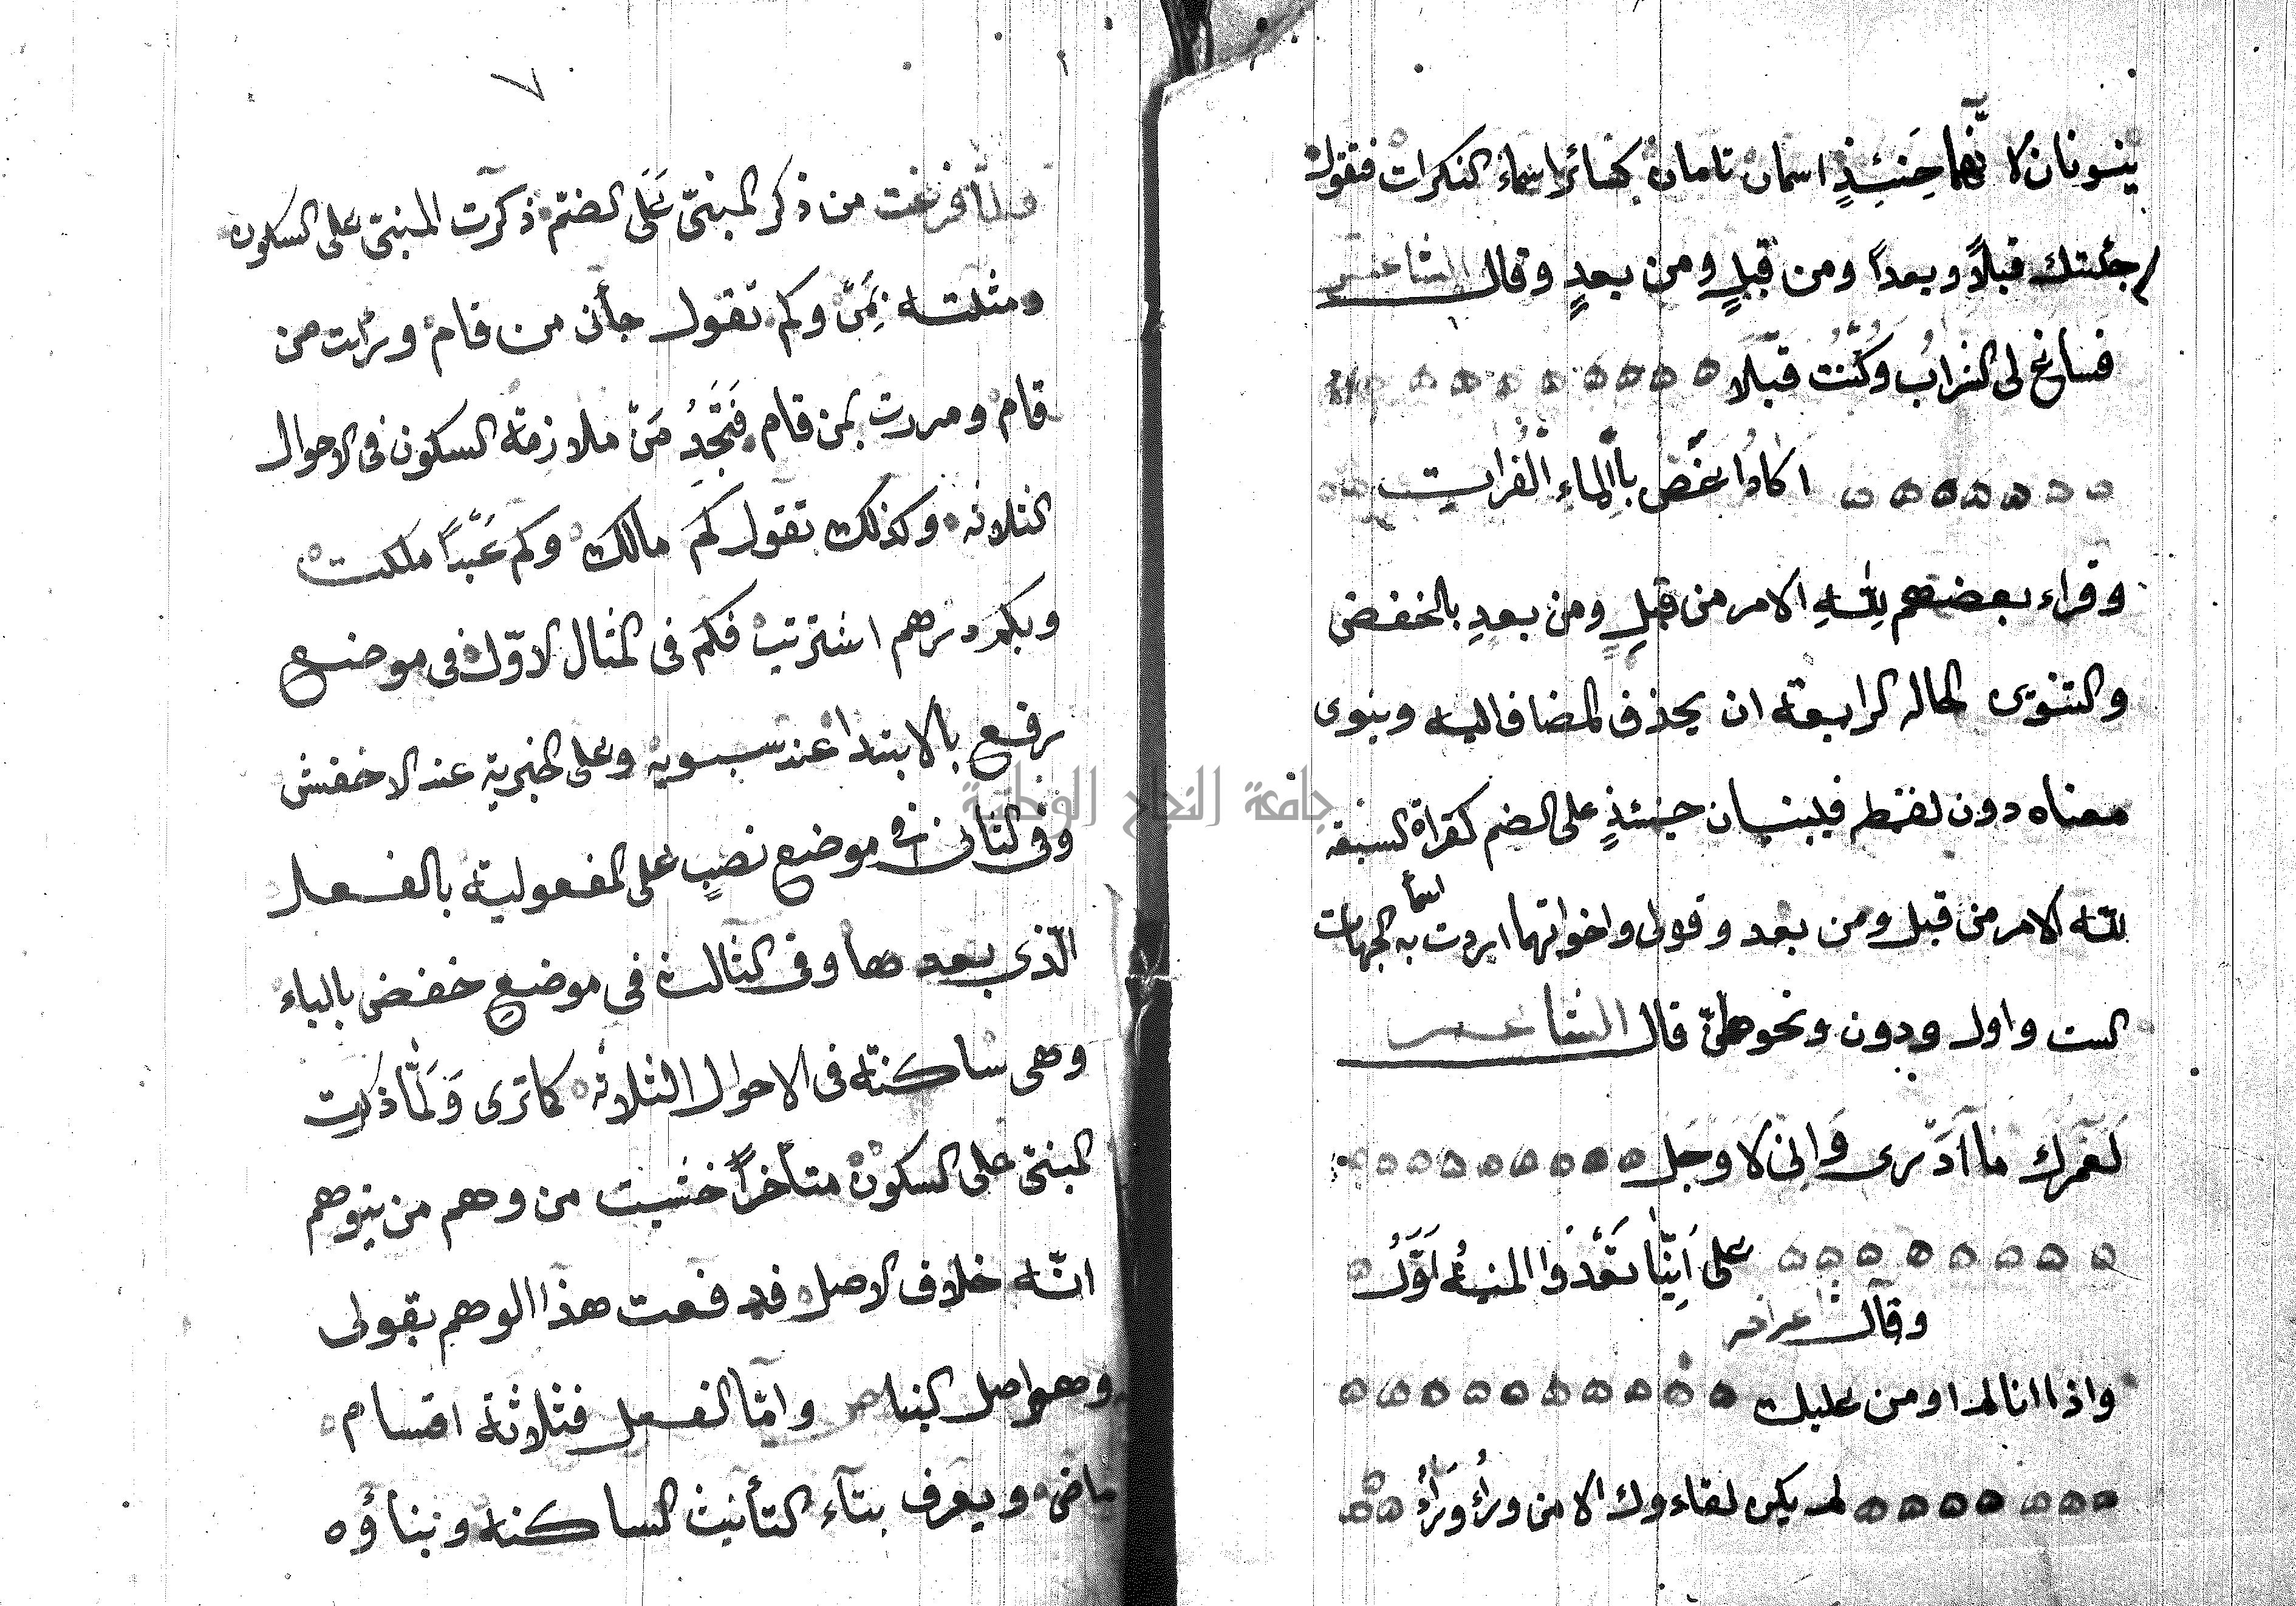 ينونان لا نهما حينئذٍ اسمان تامان كسائر اسماء النكرات فتقول
جئتك قبلاً وبعداً ومن قبلٍ ومن بعدٍ وقال الشاعر
فساغ لى الشراب وكنت قبلا
اكاد اغص بالماء الفرات
وقراء بعضهم لِلّهِ الامر من قبلٍ ومن بعدٍ بالخفض
والتنوى الحاله الرابعة ان يحذف المضاف اليه وينوى
معناه دون لفظه فيبنيان حينئذٍ على الضم كقراة السبعة
لله الامر من قبل ومن بعد وقولى واخواتهما اردت به اسما الجهات
الست واول ودون ونحوهن قال الشاعر
لَعَمْرك ما اَدْرى وَاِنى لاوجَل
على اَيّنا تَعْدُوا المنيةُ اَوَّلُ
وقال اخر
واذا انا لم اومن عليك
لم يكن لقاءوك الا من وراُ وَراُ
٧
ولما فرغت من ذكر المبنىّ عَلَى الضّم ذكرت المبنىّ على السكون
ومثلته بمَنْ وكم تقول جأنى من قام ورأيت من
قام ومررت بمن قام فتَجِدُ مَنْ ملازمة السكون فى الاحوال
الثلاثه وكذلك تقول كم مالك وكم عَبْداً ملكت
وبكم درهم اشتريت فكم فى المثال الاوّل فى موضع
رفع بالابتدا عند سيبويه وعلى الخبرية عند الاخفش
وفى الثانى فى موضع نصبٍ على المفعولية بالفعل
الّذى بعدها وفى الثالث فى موضعِ خفض بالباء
وهى ساكنة فى الاحوال الثلاثه كما ترى وَلَمّا ذكرت
المبنى على السكون متأخراً خشيت من وهم من يتوهم
انّه خلاف الاصل فدفعت هذا الوهم بقولى
وهو اصل البنا وامّا الفعل فثلاثة اقسام
ماض ويعرف بتاء التأنيث الساكنه وبناؤه
جامعة النجاح الوطنية